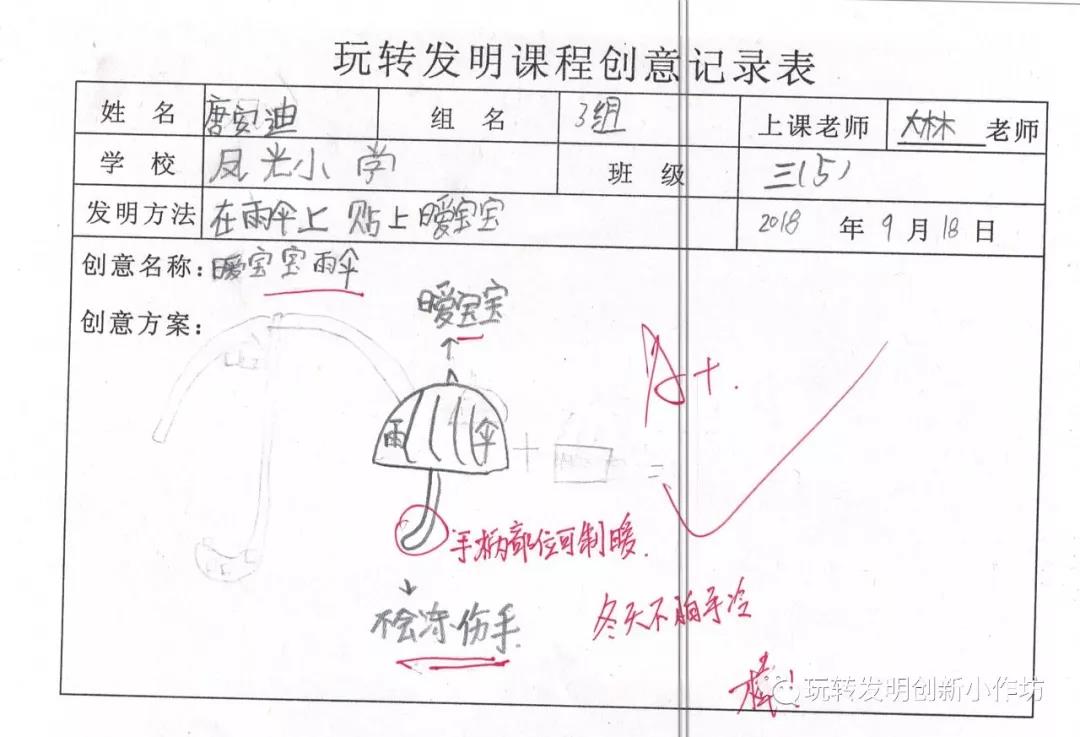 玩转发明课程创意记录表
姓 名 唐安迪 组 名 3组 上课老师 大林 老师
学 校 凤光小学 班 级 三(5)
发明方法 在雨伞上贴上暖宝宝 2018 年 9 月 18 日
创意名称：暖宝宝雨伞
暖宝宝
创意方案：
A+.
雨 伞
+ =
手柄部位可制暖.
不会冻伤手.
冬天不怕手冷
棒！
玩转发明创新小作坊